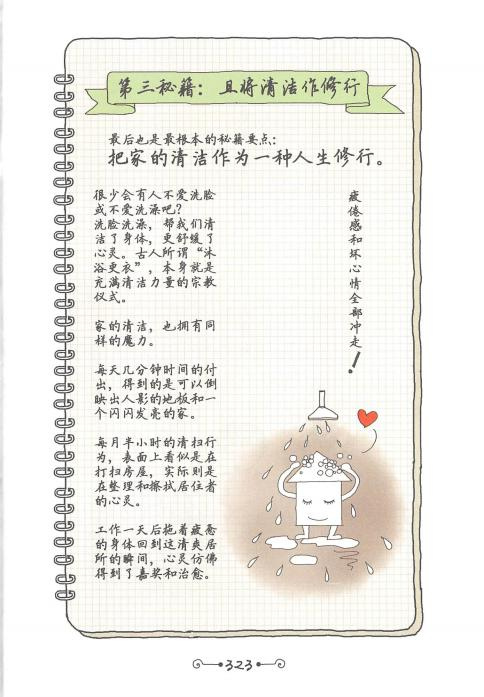 第三秘籍：且将清洁作修行
最后也是最根本的秘籍要点：
把家的清洁作为一种人生修行。
很少会有人不爱洗脸
或不爱洗澡吧？
洗脸洗澡，帮我们清
洁了身体，更舒缓了
心灵。古人所谓“沐
浴更衣”，本身就是
充满清洁力量的宗教
仪式。
家的清洁，也拥有同
样的魔力。
每天几分钟时间的付
出，得到的是可以倒
映出人影的地板和一
个闪闪发亮的家。
每月半小时的清扫行
为，表面上看似是在
打扫房屋，实际则是
在整理和擦拭居住者
的心灵。
工作一天后拖着疲惫
的身体回到这清爽居
所的瞬间，心灵仿佛
得到了嘉奖和治愈。
疲倦感和坏心情全部冲走！
323